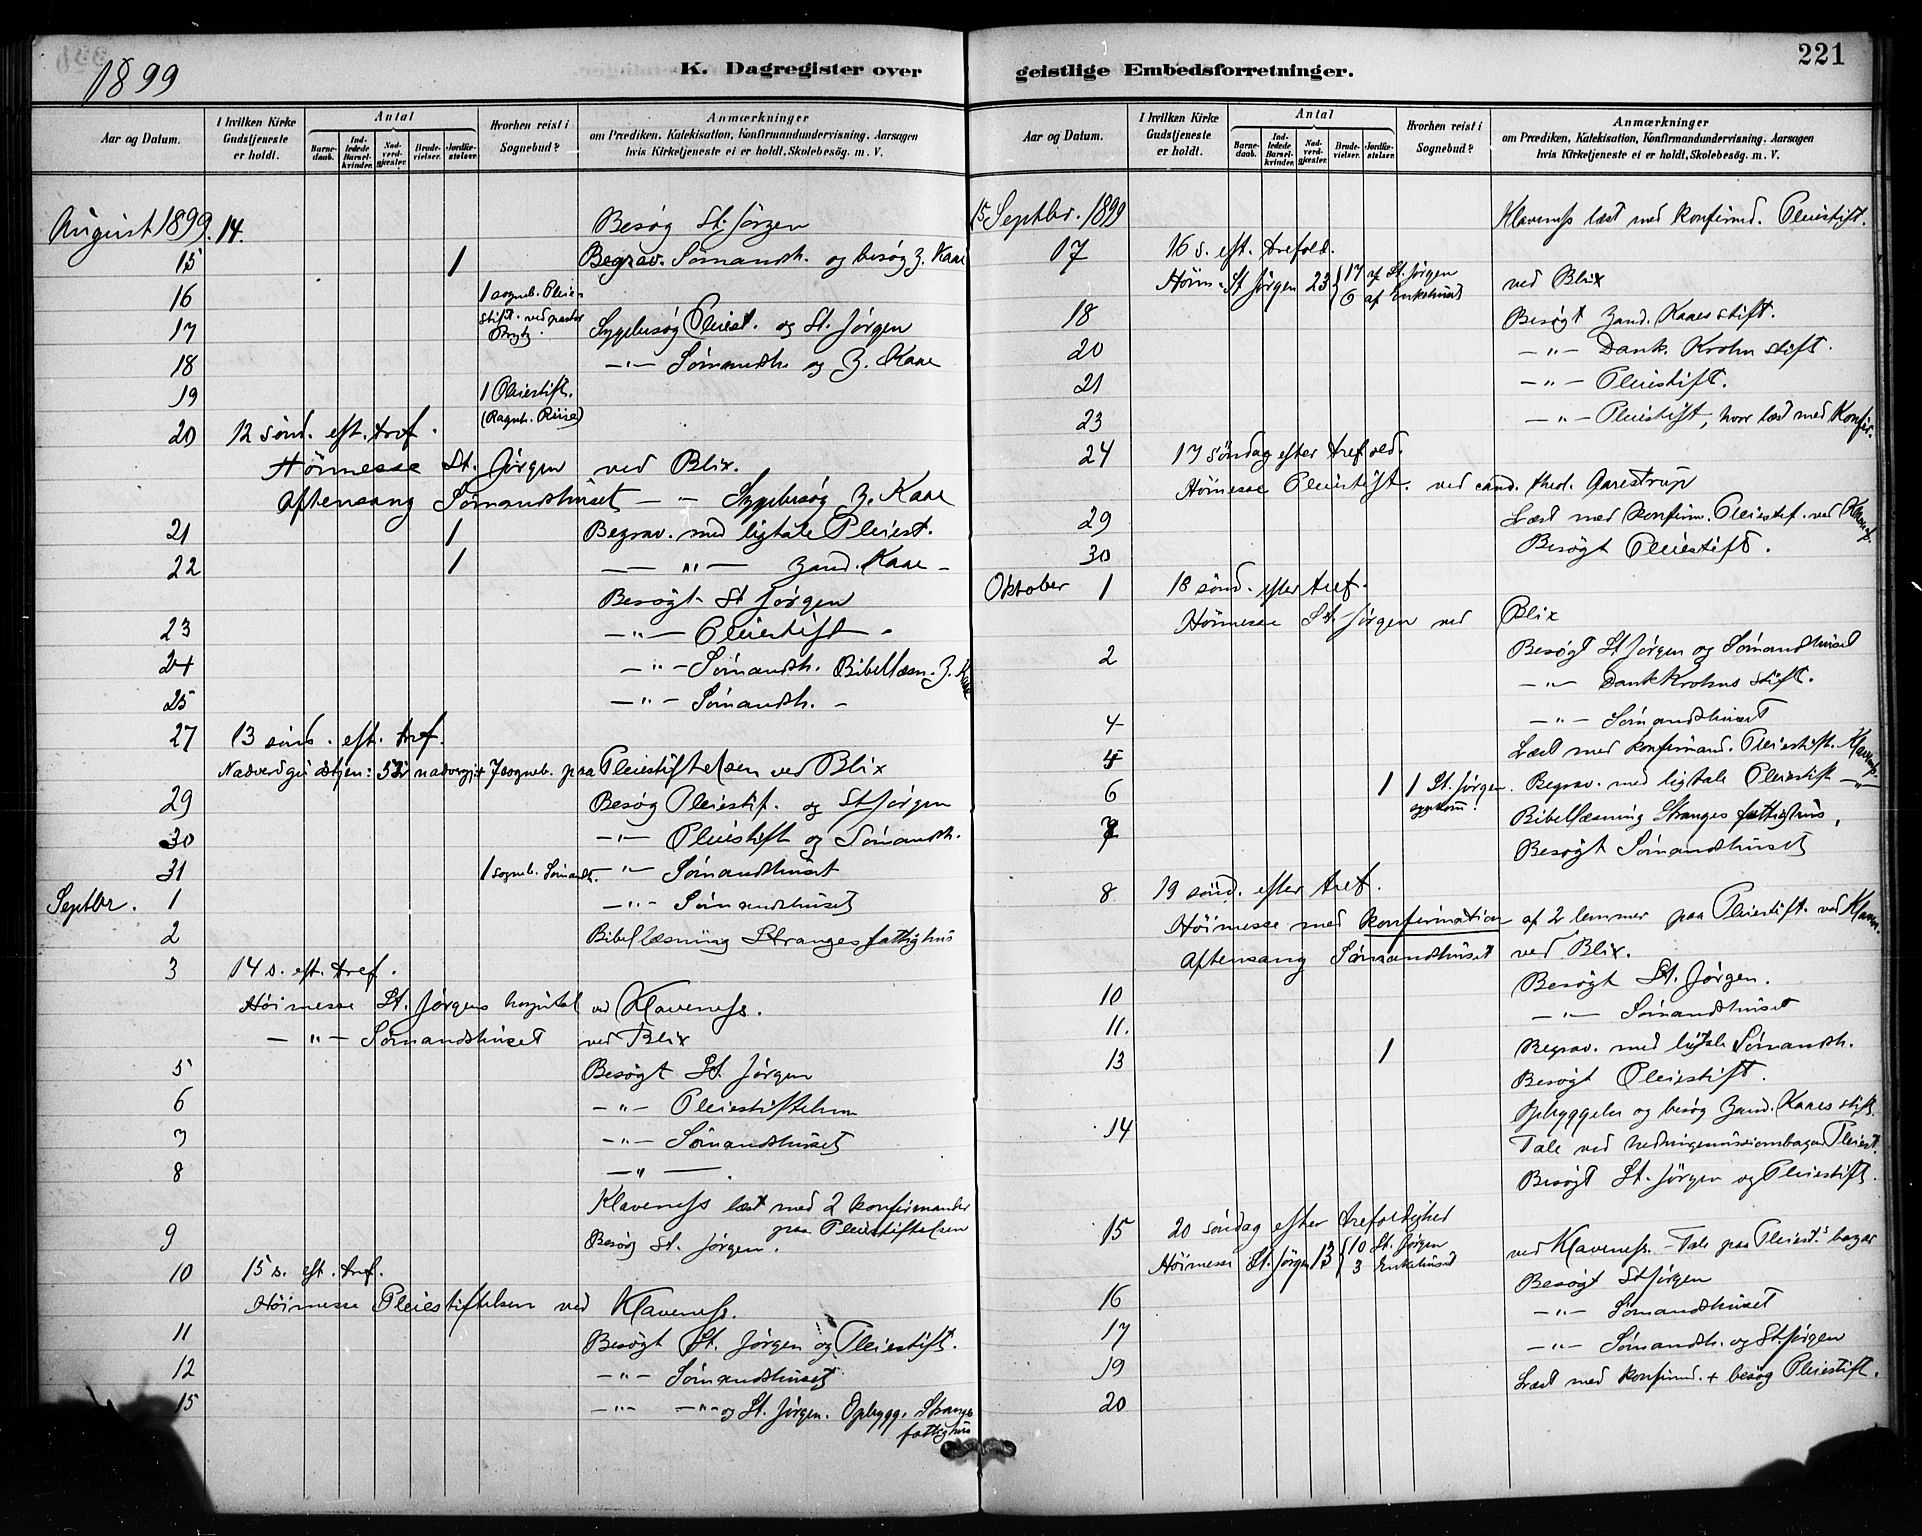 1899
K. Dagregister over
Aar og Datum.
I hvilken Kirke Gudstjeneste er holdt.
Antal
Barnedaab.
Indledede Barselkvinder.
Nadverdgjæster.
Brudevielser.
Jordfæstelser.
Hvorhen reist i Sognebud?
Anmærkninger
om Prædiken, Katekisation, Konfirmandundervisning, Aarsagen
hvis Kirketjeneste ei er holdt, Skolebesøg. m. V.
August 1899. 14. Besøg St. Jørgen
15 1 Begrav. Sømandsh. og besøg Z. Kaae
16 1 sogneb. Pleiestift. ved pastor
17 Sygebesøg Pleiest. og St. Jørgen
18 —"— Sømandsh. og Z. Kaae
19 1 Pleiestift.
20 12 sønd. eft. tref.
Høimesse St. Jørgen ved Blix.
Aftensang Sømandshuset —"— Sygebesøg Z. Kaae
21 1 Begrav. med ligtale Pleiest.
22 1 —"— Zand. Kaae —
Besøgt St Jørgen
23 —"— Pleiestift —
24 —"— Sømandsh. Bibellæsn. Z. Kaae
25 —"— Sømandsh. —
27 13 sønd. eft. tref.
paa Pleiestiftelsen ved Blix
29 Besøg Pleiestif. og St Jørgen
30 —"— Pleiestift og Sømandsh.
31 1 sogneb. Sømandh. —"— Sømandshuset
Septbr. 1 —"— Sømandshuset
2 Bibellæsning Stranges fattighus
3 14 s. eft. tref.
Høimesse St. Jørgens hospital ved Klaveness.
—"— Sømandshuset ved Blix
5 Besøgt St. Jørgen
6 —"— Pleiestiftelsen
7 —"— Sømandshuset
8 —"—
Klaveness læst med 2 konfirmander
paa Pleiestiftelsen
9 Besøg St. Jørgen.
10 15 s. eft. tref.
Høimesse Pleiestiftelsen ved Klaveness.
11 Besøgt St. Jørgen og Pleiestift.
12 —"— Sømandshuset
15 —"— —"— og St. Jørgen. Opbygg. Stranges
fattighus
221
geistlige Embedsforretninger.
Aar og Datum.
I hvilken Kirke Gudstjeneste er holdt.
Antal
Barnedaab.
Indledede Barselkvinder.
Nadverdgjæster.
Brudevielser.
Jordfæstelser.
Hvorhen reist i Sognebud?
Anmærkninger
om Prædiken, Katekisation, Konfirmandundervisning, Aarsagen
hvis Kirketjeneste ei er holdt, Skolebesøg. m. V.
15 Septbr. 1899 Klaveness læst med konfirmd. Pleiestift.
17 16 s. eft. trefold.
Høim. St Jørgen 23 { 17 af St. Jørgen 6 af Enkehuset ved Blix
18 Besøgt Zand. Kaaes stift.
20 —"— Dank. Krohn stift.
21 —"— Pleiestift.
23 —"— Pleiestift, hvor læst med Konfir.
24 17 søndag efter trefold.
Høimesse Pleiestift. ved cand. theol. Aarestrup
29 Læst med konfirm. Pleiestif. ved Klavenes.
30 Besøgt Pleiestift.
Oktober 1 18 sønd. efter tref.
Høimesse St. Jørgen ved Blix
2 Besøgt St Jørgen og Sømandshuset
—"— Dank Krohns stift.
4 —"— Sømandshuset
5 Læst med konfirmand. Pleiestift.
6 1 1 St. Jørgen. Begrav. med ligtale Pleiestift —"—
7 Bibellæsning Stranges fattighus,
Besøgt Sømandshuset
8 19 sønd. efter tref.
Høimesse med konfirmation af 2 lemmer paa Pleiestift. ved Klaven.
Aftensang Sømandshuset ved Blix.
10 Besøgt St. Jørgen.
11. —"— Sømandshuset
13 1 Begrav. med ligtale Sømandsh.
Besøgt Pleiestift.
14 Opbyggelse og besøg Zand. Kaaes stift.
Tale ved hedningemissionbazar Pleiest.
Besøgt St. Jørgen og Pleiestift.
15 20 søndag efter trefoldighed
Høimesse St. Jørgen 13 { 10 St. Jørgen 3 Enkehuset ved Klaveness. – Tale paa Pleiest.s bazar
16 Besøgt St Jørgen
17 —"— Sømandshuset
19 —"— Sømandsh. og St. Jørgen
20 Læst med konfirmd. + besøg Pleiestift.